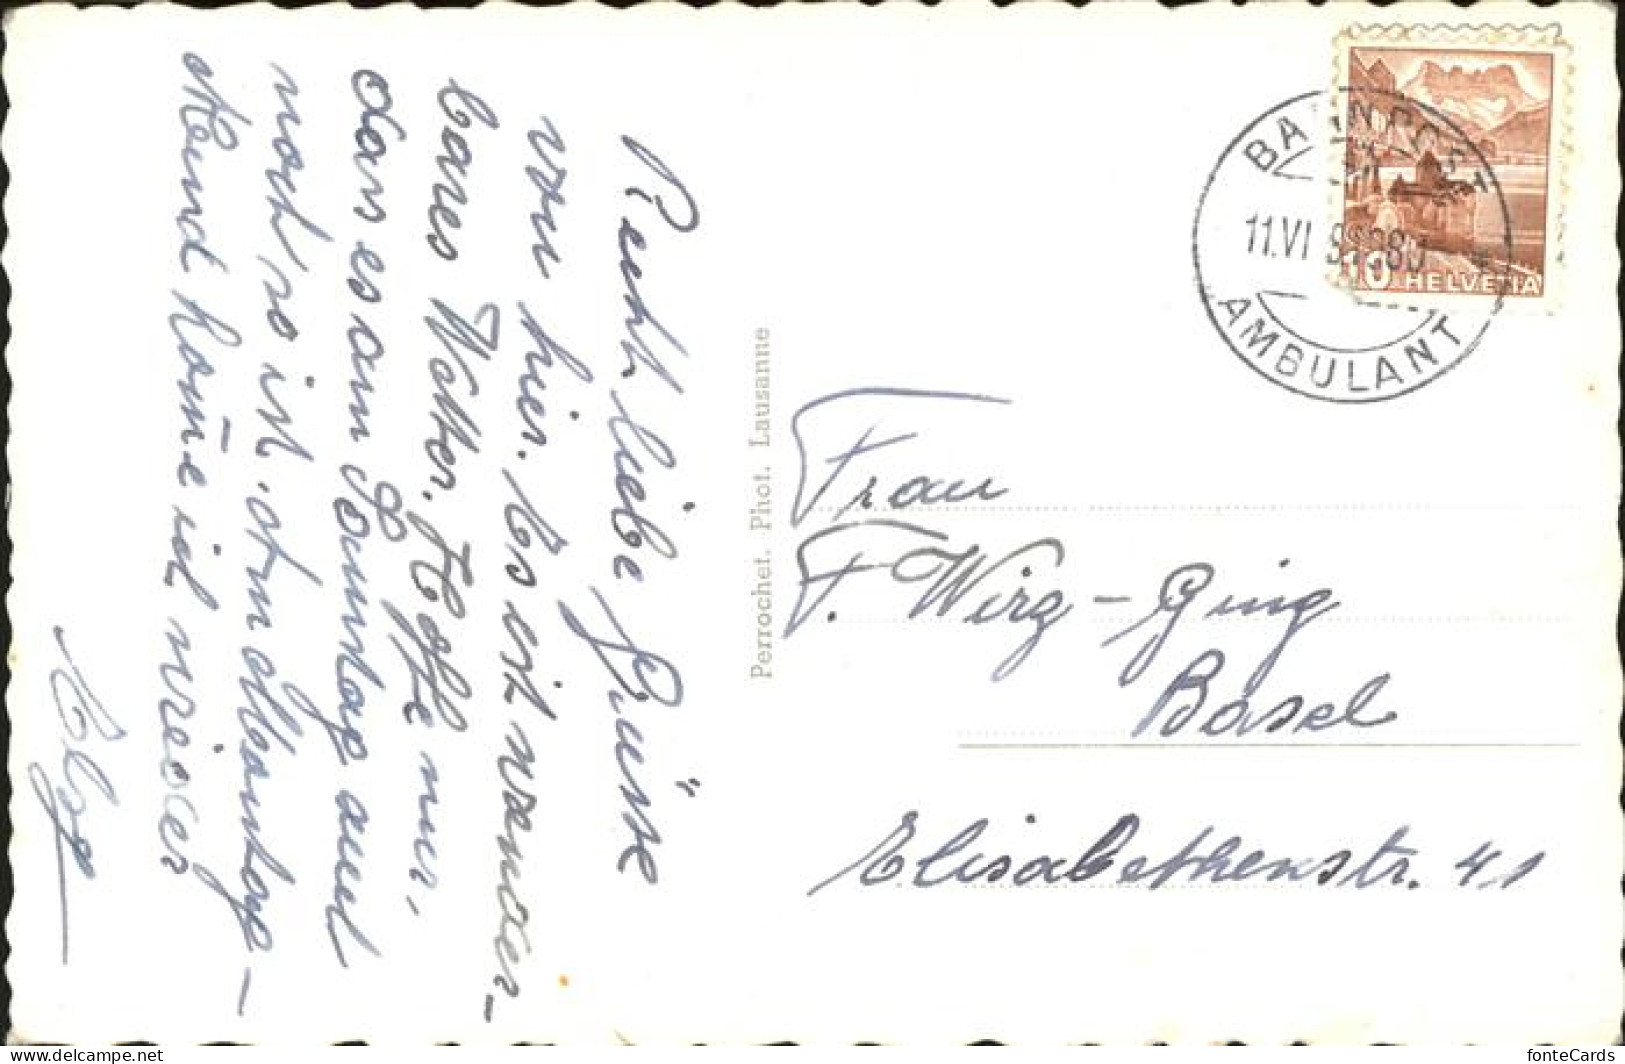 Recht liebe Grüsse
von hier. Es ist wunder-
bares Wetter. Hoffe nur,
dass es am Sonntag auch
noch so ist. Am Samstag-
Abend komme ich wieder
Perrochet. Phot. Lausanne
BAHNPOST
11.VI
AMBULANT
10 HELVETIA
Frau
F. Wirz-Ging
Basel
Elisabethenstr. 41
fonteCards